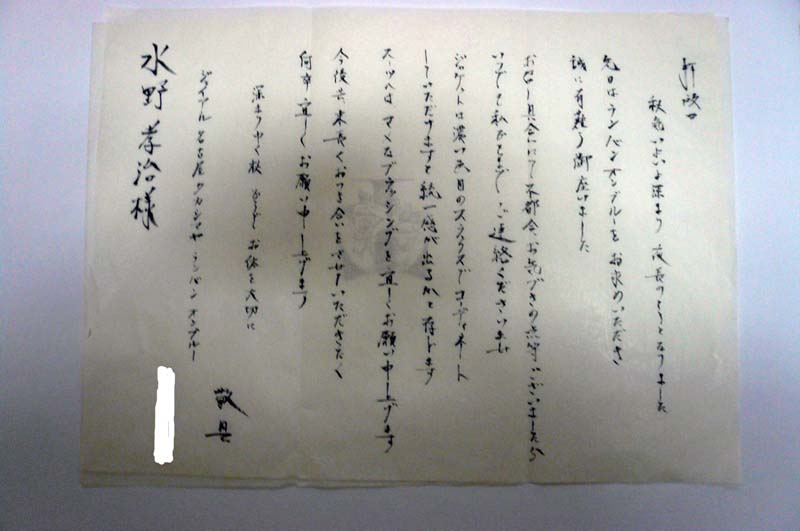 拝啓
秋気いよいよ深まり 夜長のころとなりました
先日はランバン オンブルーをお求めいただき
誠に有難う御座いました
お召し具合にて不都合、お気づきの点等ございましたら
いつでも私どもまで ご連絡くださいませ
ジャケットは濃い色目のスラックスでコーディネート
していただけますと統一感が出るかと存じます
スーツへはマメなブラッシングを宜しくお願い申し上げます
今後共 末長くおつき合いをさせていただきたく
何卒 宜しくお願い申し上げます
深まりゆく秋 お体を大切に
敬具
名古屋タカシマヤ ランバン オンブルー
水野孝治様